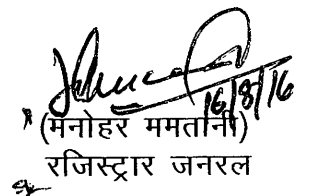 16/8/16
(मनोहर ममतानी)
रजिस्ट्रार जनरल